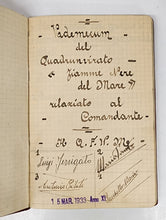 Vademecum
del
Quadrunvirato
"Fiamme Nere
del Mare"
relaziato al
Comandante
Il Q. F. N. M.
1 Luigi Ferrigato
2
3
4
15 MAR. 1933 - Anno XI